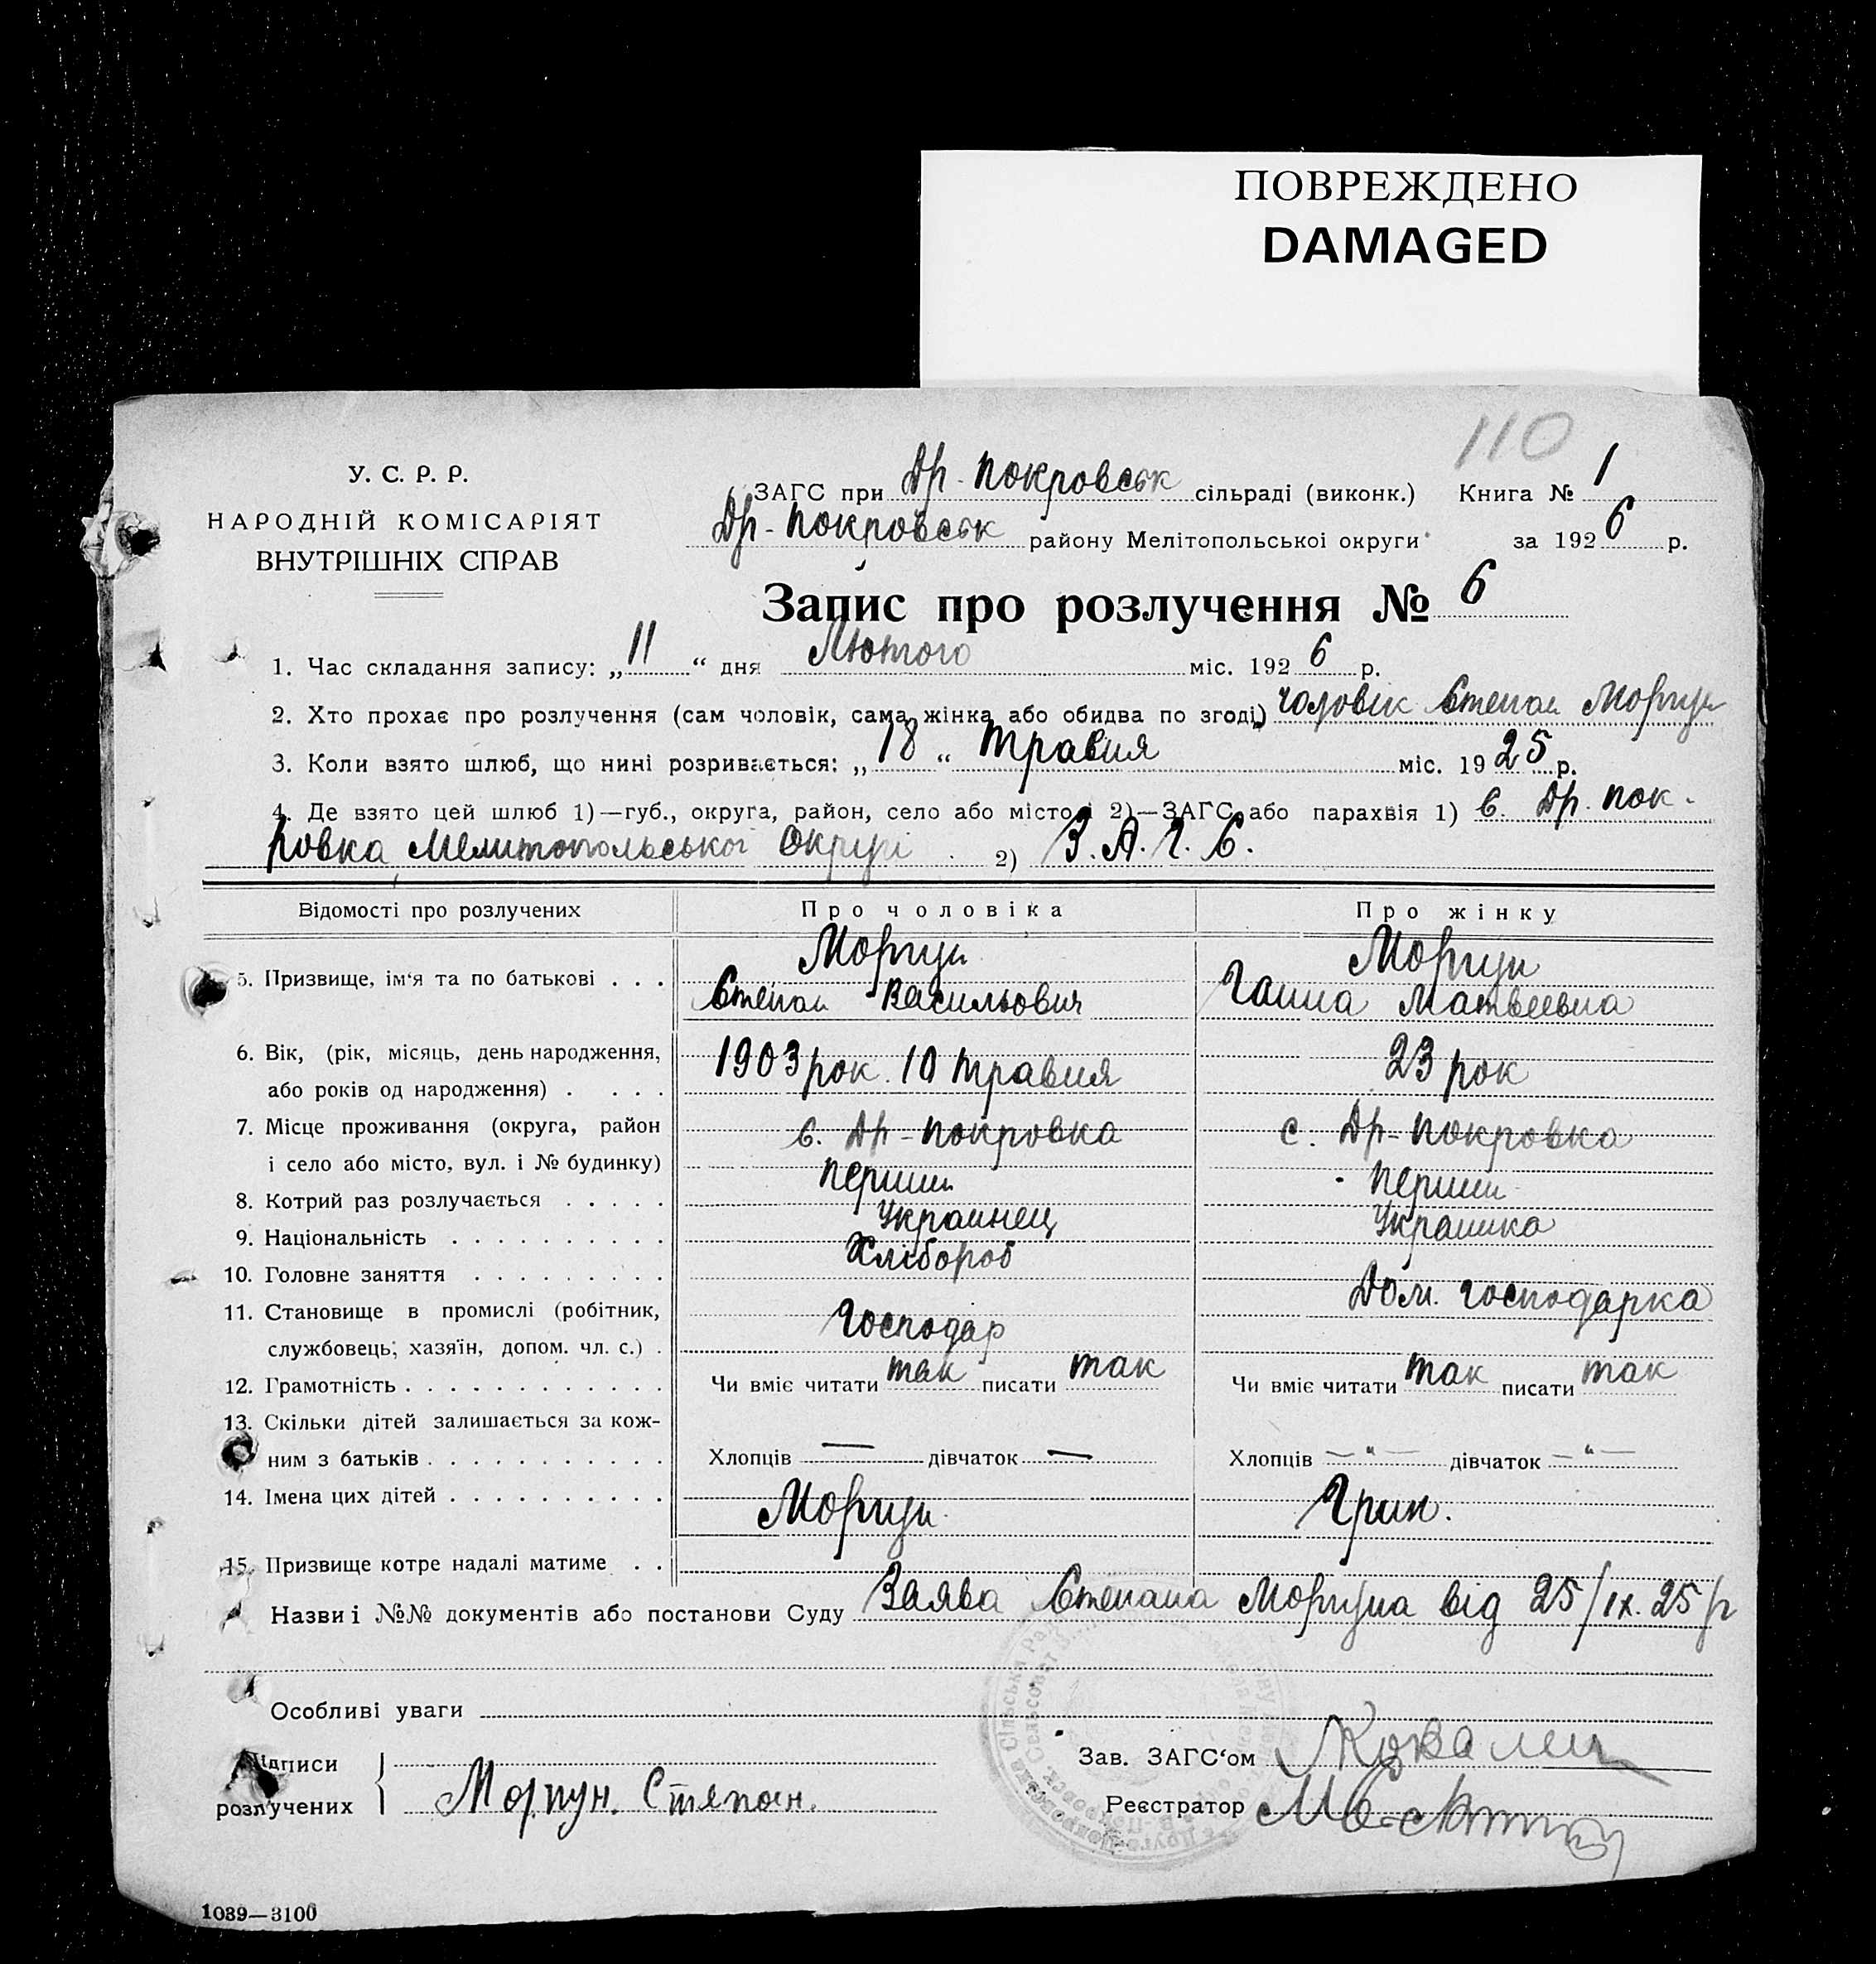 ПОВРЕЖДЕНО
DAMAGED
110
У. С. Р. Р.
НАРОДНІЙ КОМІСАРІЯТ
ВНУТРІШНІХ СПРАВ
ЗАГС при Др-Покровськ сільраді (виконк.) Книга № 1
Др-Покровськ району Мелітопольської округи за 1926 р.
Запис про розлучення № 6
1. Час складання запису: „11“ дня Лютого міс. 1926 р.
2. Хто прохає про розлучення (сам чоловік, сама жінка або обидва по згоді) чоловік Степан Моргун
3. Коли взято шлюб, що нині розривається: „18“ травня міс. 1925 р.
4. Де взято цей шлюб 1)—губ., округа, район, село або місто і 2)—ЗАГС або парахвія 1) с. Др. Пок-
ровка Мелитопольської Округи 2) З.А.Г.С.
Відомості про розлучених Про чоловіка Про жінку
Моргун Моргун
5. Призвище, ім'я та по батькові . . . Степан Васильович Ганна Матвеевна
6. Вік, (рік, місяць, день народження,
або років од народження) . . . . 1903 рок. 10 травня 23 рок
7. Місце проживання (округа, район с. Др-Покровка с. Др-Покровка
і село або місто, вул. і № будинку)
8. Котрий раз розлучається . . . . . перший перший
9. Національність . . . . . . . . . . Украинец Украинка
10. Головне заняття . . . . . . . . . Хлібороб
11. Становище в промислі (робітник, Дом. господарка
службовець; хазяїн, допом. чл. с.) . Господар
12. Грамотність . . . . . . . . . . . . Чи вміє читати так писати так Чи вміє читати так писати так
13. Скільки дітей залишається за кож-
ним з батьків . . . . . . . . . . . Хлопців — дівчаток — Хлопців —"— дівчаток —"—
14. Імена цих дітей . . . . . . . . . .
Моргун Грин.
15. Призвище котре надалі матиме . .
Назви і №№ документів або постанови Суду Заява Степана Моргуна від 25/IX. 25 р
Особливі уваги
Підписи Зав. ЗАГС'ом
розлучених Моргун. Степан. Реєстратор
1039—3100